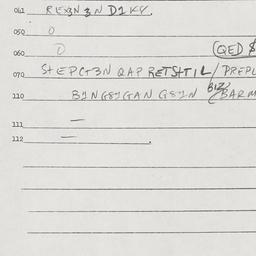 041 REX3N 3N D1KY.
050 0
060 0 (QED $
070 StEPCT3N QAP RETStT1L/PREPL
110 B1NG8IGAN G81N B1Z (BARM
111 —
112 — .